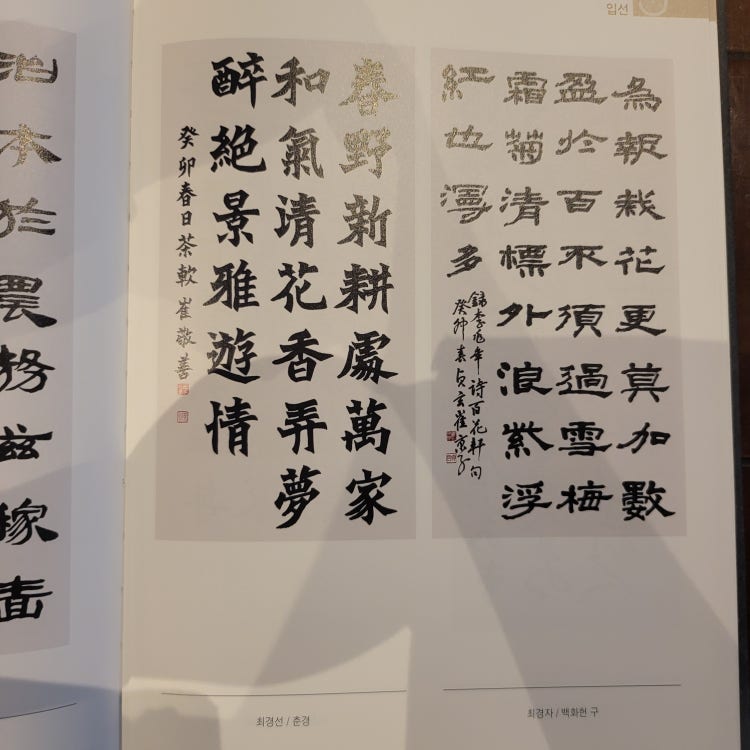 입선
為報栽花更莫加數
盈於百不須過雪梅
霜菊清標外浪紫浮
紅也漫多
錄李兆年詩百花軒句
癸卯春貞玄崔京子
春野新耕處萬家
和氣清花香弄夢
醉絕景雅遊情
癸卯春日茶軟崔敬善
治本於農務茲稼嗇
최경선 / 춘경
최경자 / 백화헌 구